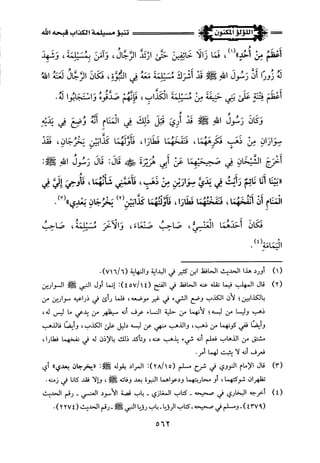 اللؤلؤ المكنون
تنبؤ مسيلمة الكذاب قبحه الله
أَعْظَمُ مِنْ أُحُدٍ»(١)، فَمَا زَالَا خَائِفَيْنِ حَتَّى ارْتَدَّ الرَّجَّالُ، وَآمَنَ بِمُسَيْلِمَةَ، وَشَهِدَ
لَهُ زُورًا أَنَّ رَسُولَ اللهِ ﷺ قَدْ أَشْرَكَ مُسَيْلِمَةَ مَعَهُ فِي النُّبُوَّةِ، فَكَانَ الرَّجَّالُ لَعَنَهُ اللهُ
أَعْظَمَ فِتْنَةٍ عَلَى بَنِي حَنِيفَةَ مِنْ مُسَيْلِمَةَ الْكَذَّابِ، فَإِنَّهُمْ صَدَّقُوهُ وَاسْتَجَابُوا لَهُ.
وَكَانَ رَسُولُ اللهِ ﷺ قَدْ أُرِيَ قَبْلَ ذَلِكَ فِي الْمَنَامِ أَنَّهُ وُضِعَ فِي يَدَيْهِ
سِوَارَانِ مِنْ ذَهَبٍ فَكَرِهَهُمَا، فَنَفَخَهُمَا فَطَارَا، فَأَوَّلَهُمَا كَذَّابَيْنِ يَخْرُجَانِ، فَقَدْ
أَخْرَجَ الشَّيْخَانِ فِي صَحِيحَيْهِمَا عَنْ أَبِي هُرَيْرَةَ ﷺ قَالَ: قَالَ رَسُولُ اللهِ ﷺ:
«بَيْنَا أَنَا نَائِمٌ رَأَيْتُ فِي يَدَيَّ سِوَارَيْنِ مِنْ ذَهَبٍ، فَأَهَمَّنِي شَأْنُهُمَا، فَأُوحِيَ إِلَيَّ فِي
الْمَنَامِ أَنْ انْفُخْهُمَا، فَنَفَخْتُهُمَا فَطَارَا، فَأَوَّلْتُهُمَا كَذَّابَيْنِ(٢) يَخْرُجَانِ بَعْدِي»(٣).
فَكَانَ أَحَدُهُمَا الْعَنْسِيَّ، صَاحِبَ صَنْعَاءَ، وَالْآخَرُ مُسَيْلِمَةَ، صَاحِبَ
الْيَمَامَةِ(٤).
(١) أورد هذا الحديث الحافظ ابن كثير في البداية والنهاية (٧١٦/٦).
(٢) قال المهلب فيما نقله عنه الحافظ في الفتح (٤٥٧/١٤): إنما أول النبي ﷺ السوارين
بالكذابين؛ لأن الكذب وضع الشيء في غير موضعه، فلما رأى في ذراعيه سوارين من
ذهب وليسا من لبسه؛ لأنهما من حلية النساء عرف أنه سيظهر من يدعي ما ليس له،
وأيضًا ففي كونهما من ذهب، والذهب منهي عن لبسه دليل على الكذب، وأيضًا فالذهب
مشتق من الذهاب فعلم أنه شيء يذهب عنه، وتأكد ذلك بالإذن له في نفخهما فطارا،
فعرف أنه لا يثبت لهما أمر.
(٣) قال الإمام النووي في شرح مسلم (٢٨/١٥): المراد بقوله ﷺ: «يخرجان بعدي» أي
تظهران شوكتهما، أو محاربتهما ودعواهما النبوة بعد وفاته ﷺ، وإلا فقد كانا في زمنه.
(٤) أخرجه البخاري في صحيحه ـ كتاب المغازي ـ باب قصة الأسود العنسي ـ رقم الحديث
(٤٣٧٩) ـ ومسلم في صحيحه ـ كتاب الرؤيا ـ باب رؤيا النبي ﷺ ـ رقم الحديث (٢٢٧٤).
٥٦٢